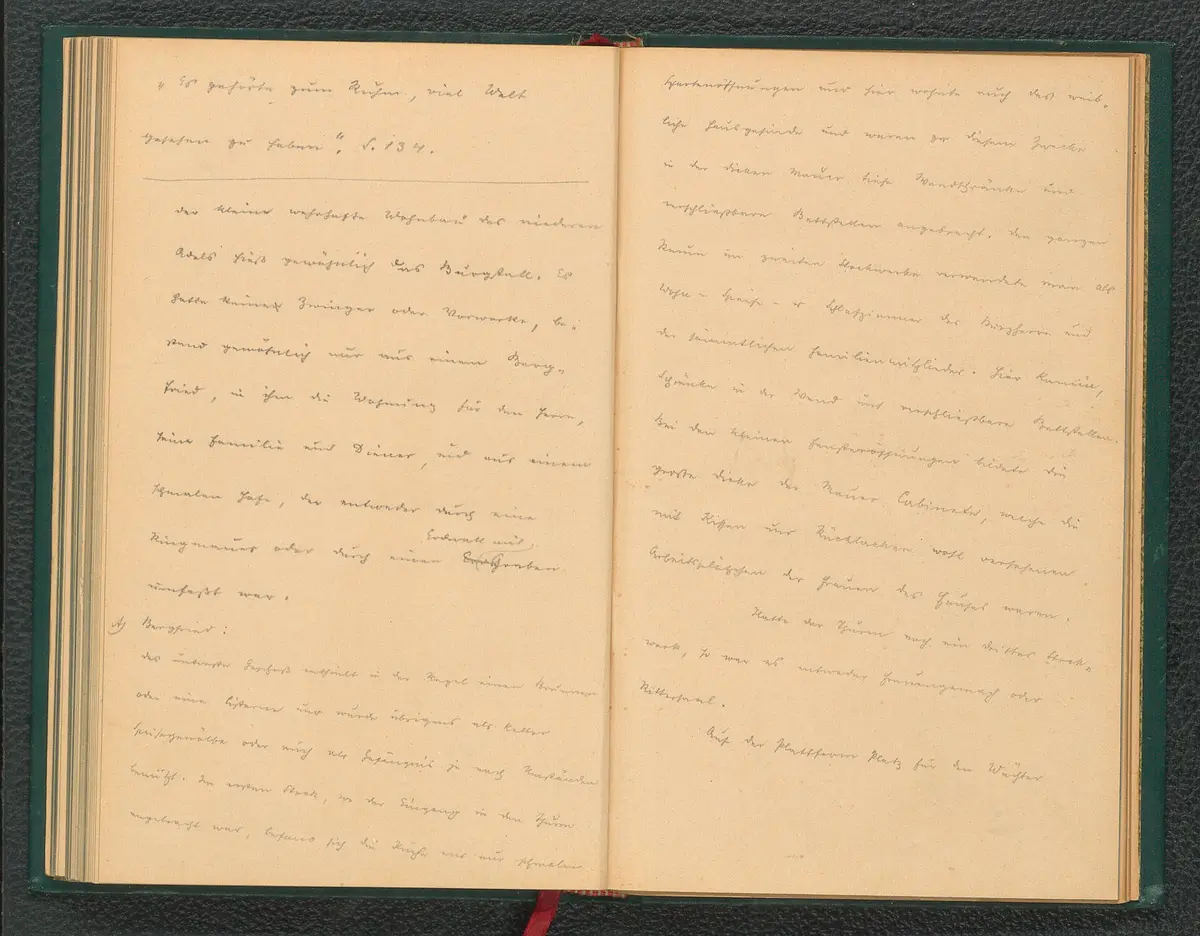 „ Es gehörte zum Ruhm, viel Welt
gesehen zu haben“. S. 134.
der kleine wehrhafte Wohnbau des niederen
Adels hieß gewöhnlich das Burgstall. Es
hatte keinen Zwinger oder Vorwerke, be-
stand gewöhnlich nur aus einem Berg-
fried, in ihm die Wohnung für den Herrn,
seine Familie und Diener, und aus einem
schmalen Hofe, der entweder durch eine
Erdwall mit
Ringmauer oder durch einen Graben
umfaßt war.
A) Bergfried:
das unterste Geschoß enthielt in der Regel einen Brunnen
oder eine Cisterne und wurde übrigens als Keller
Speisegewölbe oder auch als Gefängnis je nach Umständen
benützt. Im ersten Stock, wo der Eingang in den Thurm
angebracht war, befand sich die Küche mit nur schmalen
Spartenöffnungen und hier wohnte auch das weib-
liche Hausgesinde und waren zu diesem Zwecke
in der dicken Mauer tiefe Wandschränke und
verschließbare Bettstellen angebracht. Den ganzen
Raum im zweiten Stockwerke verwendete man als
Wohn- Speise- u Schlafzimmer des Burgherrn und
der sämmtlichen Familienmitglieder. Hier Kamine,
Schränke in der Wand und verschließbare Bettstellen.
Bei den kleinen Fensteröffnungen bildete die
große Dicke der Mauer Cabinete, welche die
mit Kissen und Rücklacken wohl versehenen
Arbeitsplätzchen der Frauen des Hauses waren.
Hatte der Thurm noch ein drittes Stock-
werk, so war es entweder Frauengemach oder
Rittersaal.
Auf der Plattform Platz für den Wächter